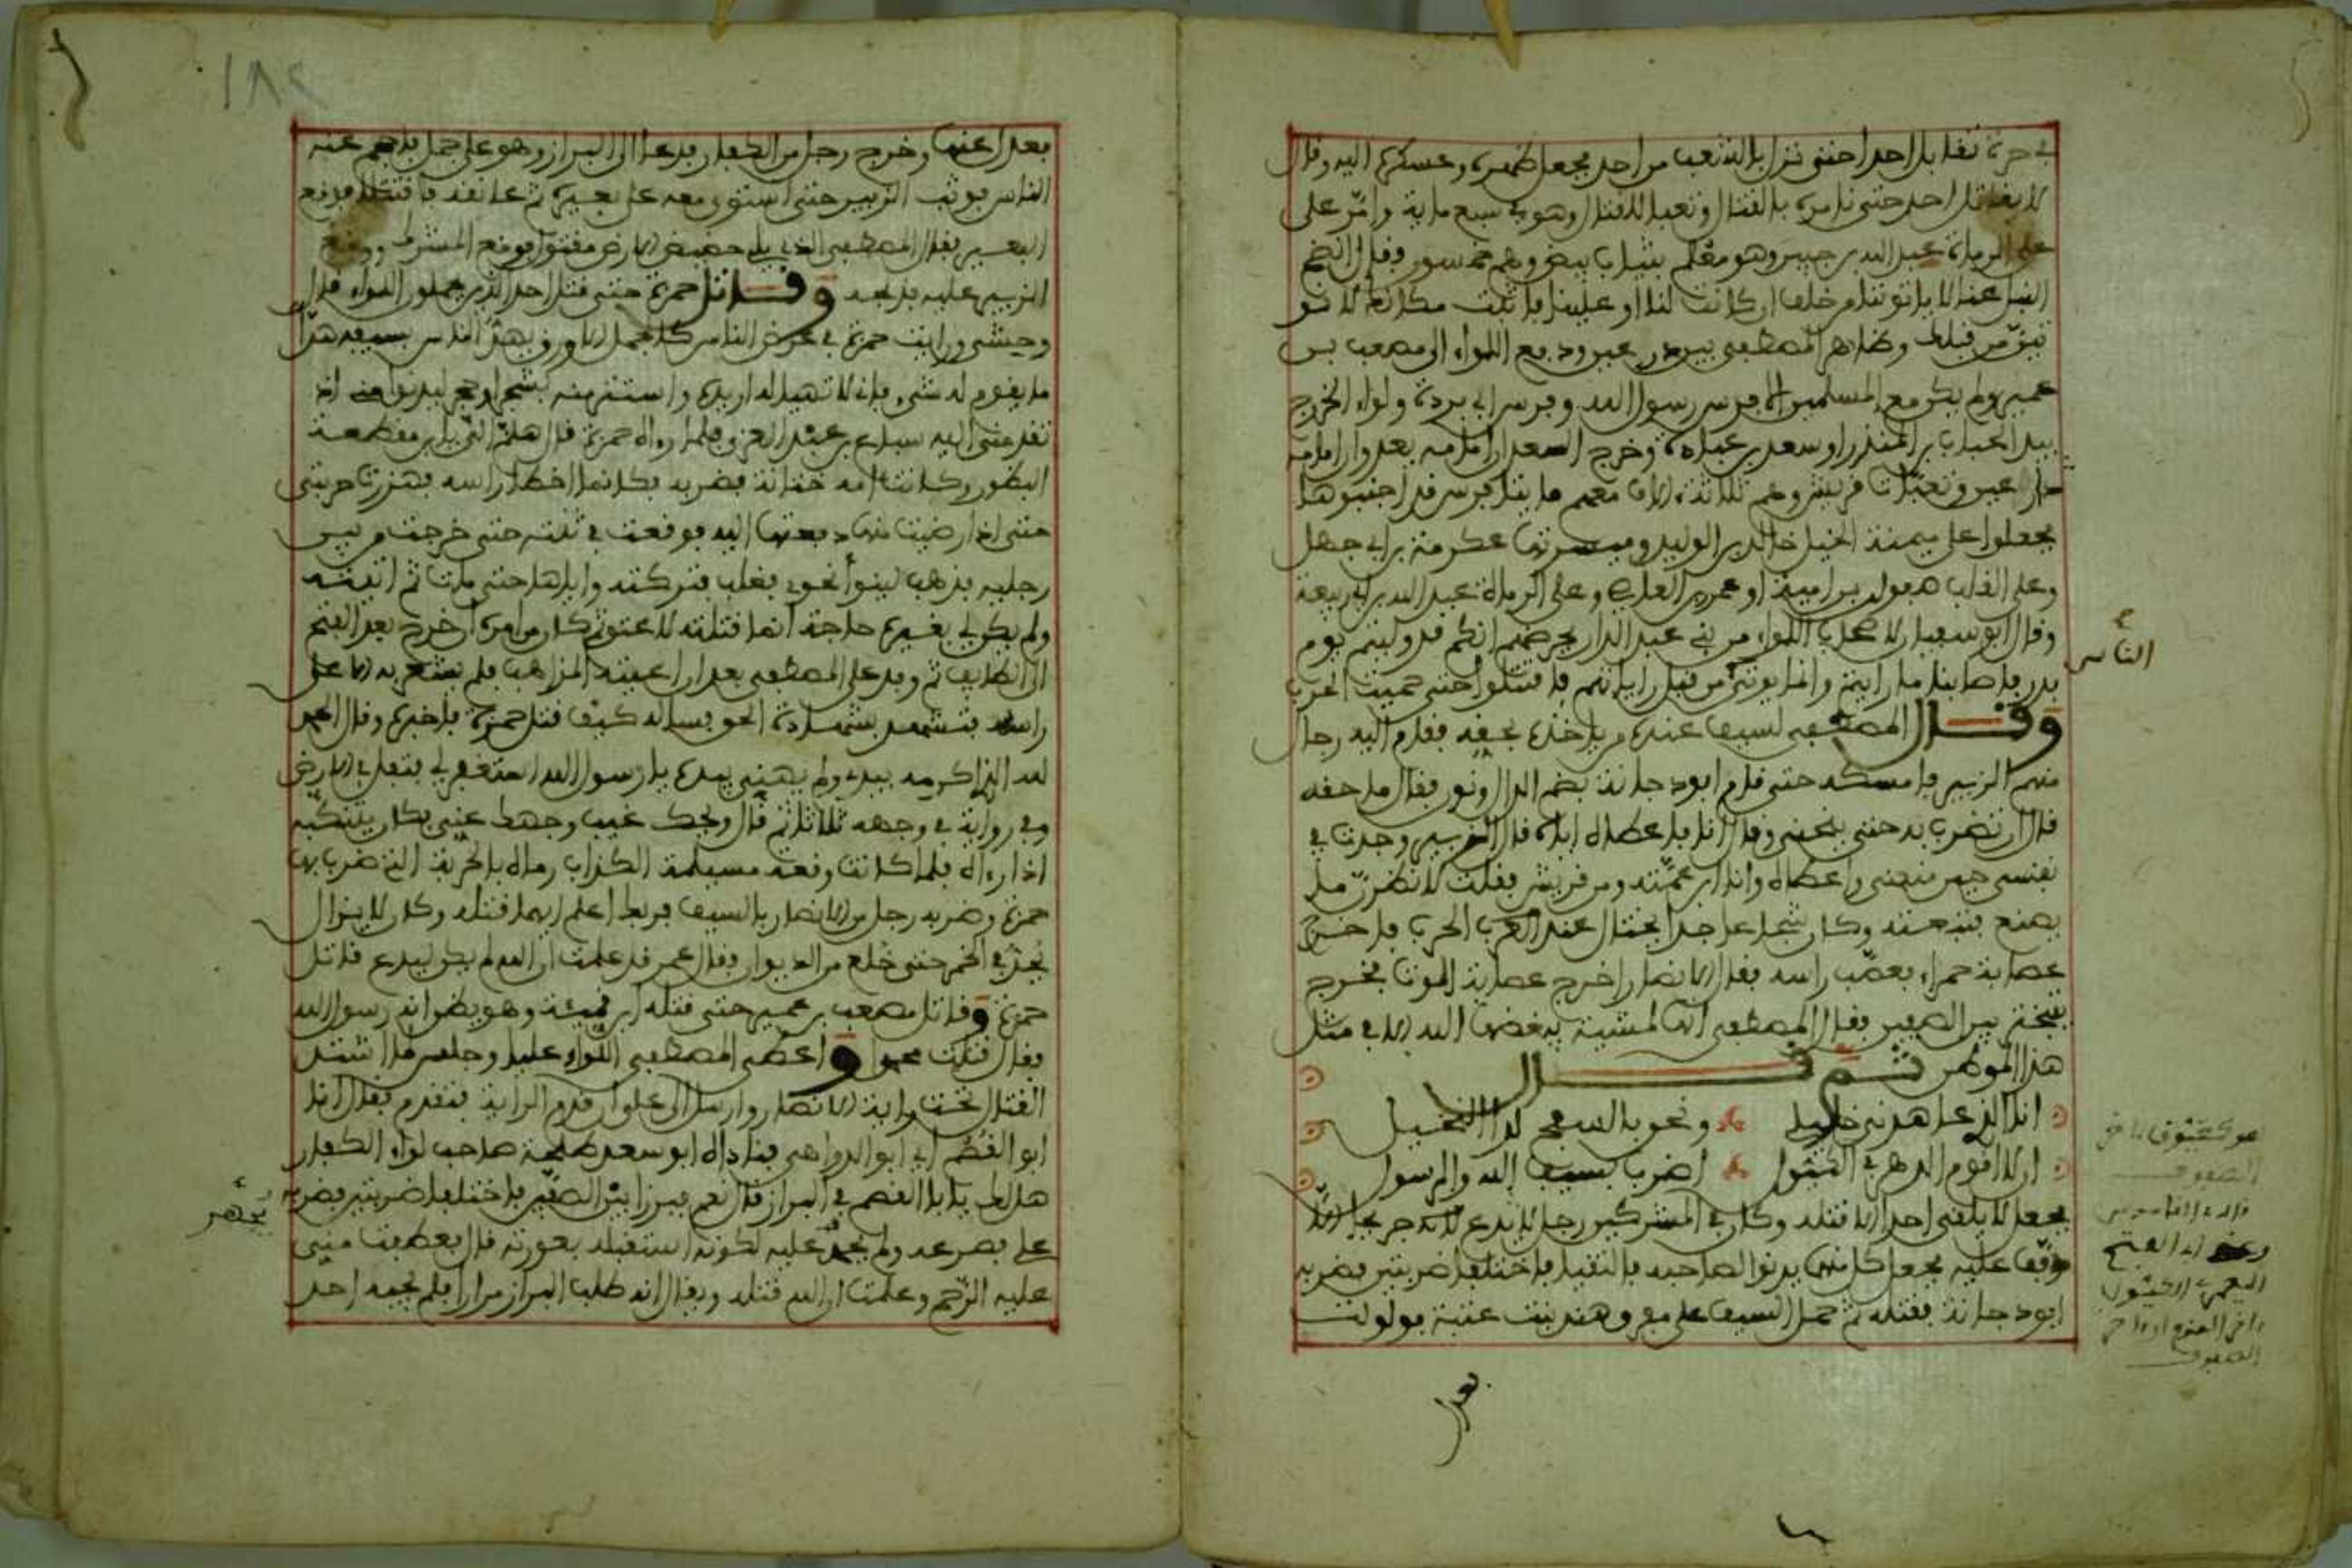 في حرة تقابل احدا حتى نزل بالشعب من احد فجعل ظهره وعسكره اليه وقال
لا يقاتل احد حتى نامره بالقتال وتعبا للقتال وهو في سبع ماية وامّر على
على الرماة عبد الله بن جبير وهو معلم بثياب بيض وهم خمسون وقال انضح
الخيل عنا لا ياتوننا من خلفنا ان كانت لنا او علينا فاثبت مكانك لا نو
تينّ من قبلك وظاهر المصطفى بين درعين ودفع اللواء الى مصعب بن
عمير ولم يكن مع المسلمين الا فرس رسول الله وفرس ابي بردة ولواء الخزرج
بيد الحباب بن المنذر او سعد بن عبادة وخرج السعدان امامه يعدوان امامه
دارعين وتعبّات قريش وهم ثلاثة الاف معهم مايتا فرس قد اجنبوها
فجعلوا على ميمنة الخيل خالد بن الوليد وميسرتها عكرمة بن ابي جهل
وعلى القلب صفوان بن امية او عمرو بن العاص وعلى الرماة عبد الله بن ابي ربيعة
وقال ابو سفيان لاصحاب اللواء من بني عبد الدار يحرضهم انكم قد وليتم يوم
بدر فاصابنا ما رايتم وانما يوتى من قبل راياتهم فاقتتلوا حتى حميت الحرب
الناس
وقال المصطفى لسيف عنده من ياخذه بحقه فقام اليه رجال
منهم الزبير فامسكه حتى قام ابو دجانة بضم الدال ونون فقال ما حقه
قال ان تضرب به حتى ينحني وقال انا فاعطاه اياه قال الزبير وجدت في
نفسي حين منعني واعطاه وانا ابن عمّته ومن قريش فقلت لانظرنّ ما
يصنع فتبعته وكان شجاعا جدا يختال عند الحرب فاخرج
عصابة حمراء فعصّب راسه فقال الانصار اخرج عصابة الموت فخرج
يتبختر بين الصفين فقال المصطفى انها لمشية يبغضها الله الا في مثل
هذا الموطن ثم قال
انا الذي عاهدني خليلي ونحن بالسفح لدا النخيل
ان لا اقوم الدهر في الكيّول اضرب بسيف الله والرسول
هو كعيّوق اخر
الصفوف
قاله القاموس
وعند ابي الفتح
اليعمري الكيّول
اخر القوم او اخر
الصفوف
فجعل لا يلقى احدا الا قتله وكان في المشركين رجل لا يدع لنا جريحا الا
ذفّف عليه فجعل كل منهما يدنو لصاحبه فالتقيا فاختلفا ضربتين فضربه
ابو دجانة فقتله ثم حمل السيف على مفرق هند بنت عتبة فولولت
فعدل
١٨٢
فعدل عنها وخرج رجل من الكفار فدعا الى البراز وهو على جمل فاحجم عنه
الناس فوثب الزبير حتى استوى معه على بعيره ثم عانقه فاقتتلا فوق
البعير فقال المصطفى الذي يلي حضيض الارض مقتول فوقع المشرك ووقع
الزبير عليه فذبحه وقاتل حمزة حتى قتل احد الذين يحملون اللواء قال
وحشي ورايت حمزة في عرض الناس كالجمل الاورق يهذّ الناس بسيفه هذّا
ما يقوم له شيء فاني لا تهيا له اريده واستتر منه بشجر او حجر ليدنو مني اذ
تقدمني اليه سباع بن عبد العزى فلما راه حمزة قال هلمّ اليّ يا بن مقطعة
البظور وكانت امه ختانة فضربه فكانما اخطا راسه فهززت حربتي
حتى اذا رضيت منها دفعتها اليه فوقعت في ثنته حتى خرجت من بين
رجليه فذهب لينوأ نحوي فغلب فتركته واياها حتى مات ثم اتيته
ولم يكن لي بغيره حاجة انما قتلته لاعتق ثم كان من امره ان خرج بعد الفتح
الى الطايف ثم وفد على المصطفى بعد ان اعيته المذاهب فلم يشعر به الا على
راسه فتشهد بشهادة الحق فساله كيف قتل حمزة فاخبره وقال الحمد
لله الذي اكرمه بيدي ولم يهني بيده يا رسول الله استغفر لي فتفل في الارض
وفي رواية في وجهه ثلاثا ثم قال ويحك غيب وجهك عني فكان يتنكّبه
اذا راه فلما كانت وقعة مسيلمة الكذاب رماه بالحربة التي ضرب بها
حمزة وضربه رجل من الانصار بالسيف فربك اعلم ايهما قتله وكان لا يزال
يحدّ في الخمر حتى خلع من الديوان فقال عمر قد علمت ان الله لم يكن ليدع قاتل
حمزة وقاتل مصعب بن عمير حتى قتله ابن قميئة وهو يظن انه رسول الله
فقال قتلت محمدا واعطى المصطفى اللواء عليا وجلس لما اشتد
القتال تحت راية الانصار وارسل الى علي ان قدم الراية فتقدم فقال انا
ابو القُصَم اي ابو الدواهي فناداه ابو سعد طلحة صاحب لواء الكفار
هل لك يا ابا القصم في البراز قال نعم فبرزا بين الصفّين فاختلفا ضربتين فضربه
يجهز
علي فصرعه ولم يجهز عليه لكونه استقبله بعورته قال فعطفت مني
عليه الرّحم وعلمت ان الله قتله ويقال انه طلب البراز مرارا فلم يجبه احد